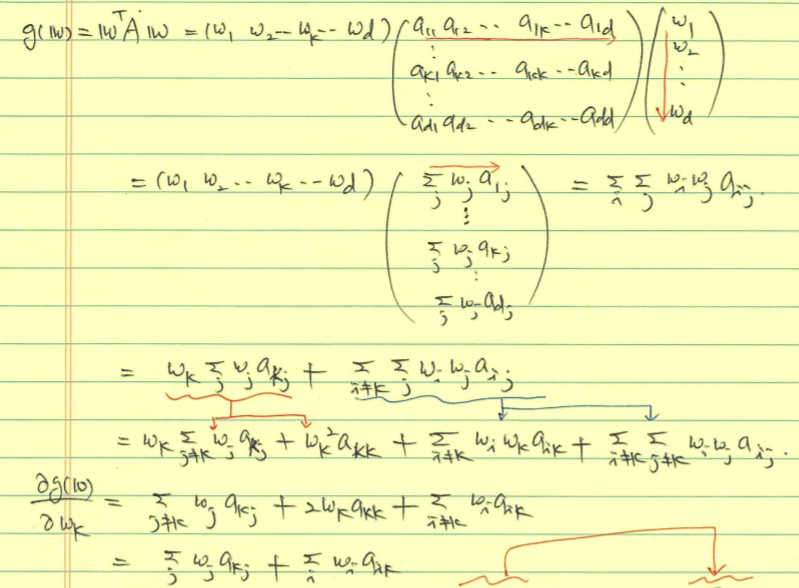 g(w) = w^T A w = (w_1 w_2 -- w_k -- w_d) ( a_11 a_12 -- a_1k -- a_1d ) ( w_1 )
( ⋮ ) ( w_2 )
( a_k1 a_k2 -- a_kk -- a_kd ) ( ⋮ )
( ⋮ )
( a_d1 a_d2 -- a_dk -- a_dd ) ( w_d )
= (w_1 w_2 -- w_k -- w_d) ( Σ_j w_j a_1j ) = Σ_i Σ_j w_i w_j a_ij.
( ⋮ )
( Σ_j w_j a_kj )
( ⋮ )
( Σ_j w_j a_dj )
= w_k Σ_j w_j a_kj + Σ_{i≠k} Σ_j w_i w_j a_ij
= w_k Σ_{j≠k} w_j a_kj + w_k^2 a_kk + Σ_{i≠k} w_i w_k a_ik + Σ_{i≠k} Σ_{j≠k} w_i w_j a_ij.
∂g(w)/∂w_k = Σ_{j≠k} w_j a_kj + 2w_k a_kk + Σ_{i≠k} w_i a_ik
= Σ_j w_j a_kj + Σ_i w_i a_ik